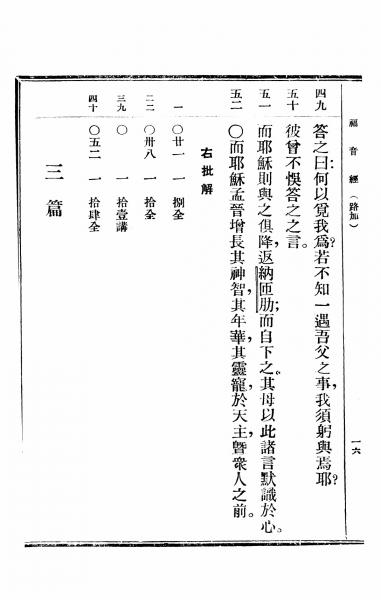 福音經（路加）
一六
四九 答之曰：何以覓我爲？若不知一遇吾父之事，我須躬與焉耶？
五十 彼曾不悞答之之言。
五一 而耶穌則與之俱降，返納匝肋；而自下之。其母以此諸言默識於心。
五二 〇而耶穌孟晉增長其神智，其年華其靈寵於天主，曁衆人之前。
右批解
一 〇廿一 一 捌全
二二 〇卅八 一 拾全
三九 〇 一 拾壹講
四十 〇五二 一 拾肆全
三篇